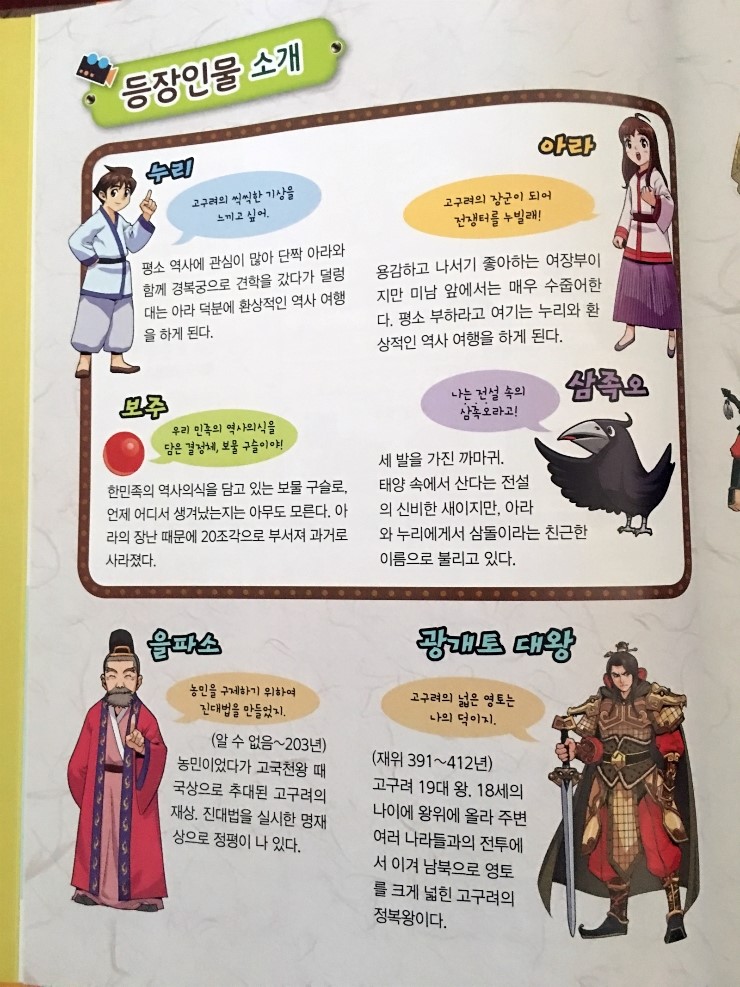 등장인물 소개
누리
고구려의 씩씩한 기상을
느끼고 싶어.
평소 역사에 관심이 많아 단짝 아라와
함께 경복궁으로 견학을 갔다가 덜렁
대는 아라 덕분에 환상적인 역사 여행
을 하게 된다.
아라
고구려의 장군이 되어
전쟁터를 누빌래!
용감하고 나서기 좋아하는 여장부이
지만 미남 앞에서는 매우 수줍어한
다. 평소 부하라고 여기는 누리와 환
상적인 역사 여행을 하게 된다.
보주
우리 민족의 역사의식을
담은 결정체, 보물 구슬이야!
한민족의 역사의식을 담고 있는 보물 구슬로,
언제 어디서 생겨났는지는 아무도 모른다. 아
라의 장난 때문에 20조각으로 부서져 과거로
사라졌다.
삼족오
나는 전설 속의
삼족오라고!
세 발을 가진 까마귀.
태양 속에서 산다는 전설
의 신비한 새이지만, 아라
와 누리에게서 삼돌이라는 친근한
이름으로 불리고 있다.
을파소
농민을 구제하기 위하여
진대법을 만들었지.
(알 수 없음~203년)
농민이었다가 고국천왕 때
국상으로 추대된 고구려의
재상. 진대법을 실시한 명재
상으로 정평이 나 있다.
광개토 대왕
고구려의 넓은 영토는
나의 덕이지.
(재위 391~412년)
고구려 19대 왕. 18세의
나이에 왕위에 올라 주변
여러 나라들과의 전투에
서 이겨 남북으로 영토
를 크게 넓힌 고구려의
정복왕이다.